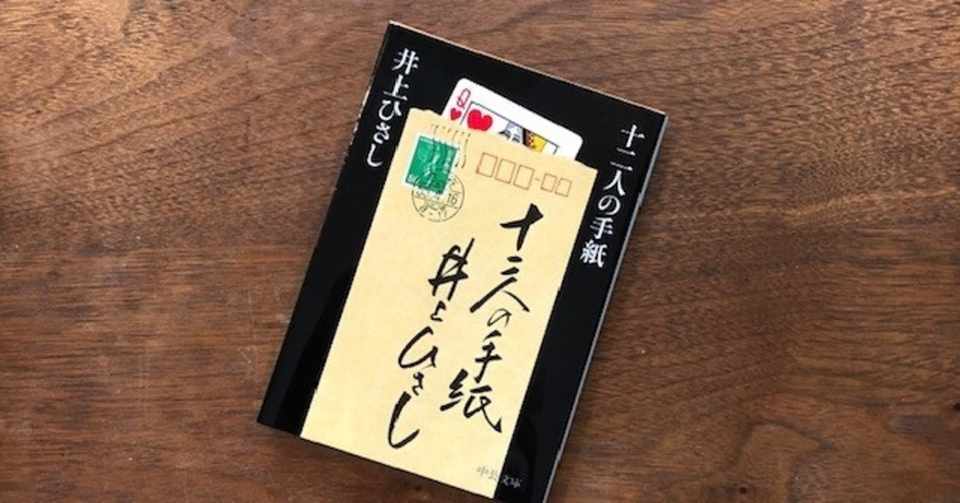 十二人の手紙
井上ひさし
Q
十二人の手紙
井上ひさし
中公文庫